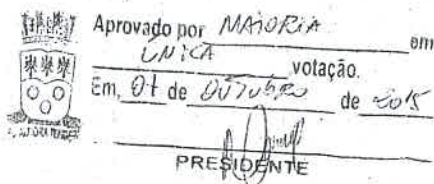 Aprovado por MAIORIA em
UNICA votação.
Em, 01 de OUTUBRO de 2015
PRESIDENTE